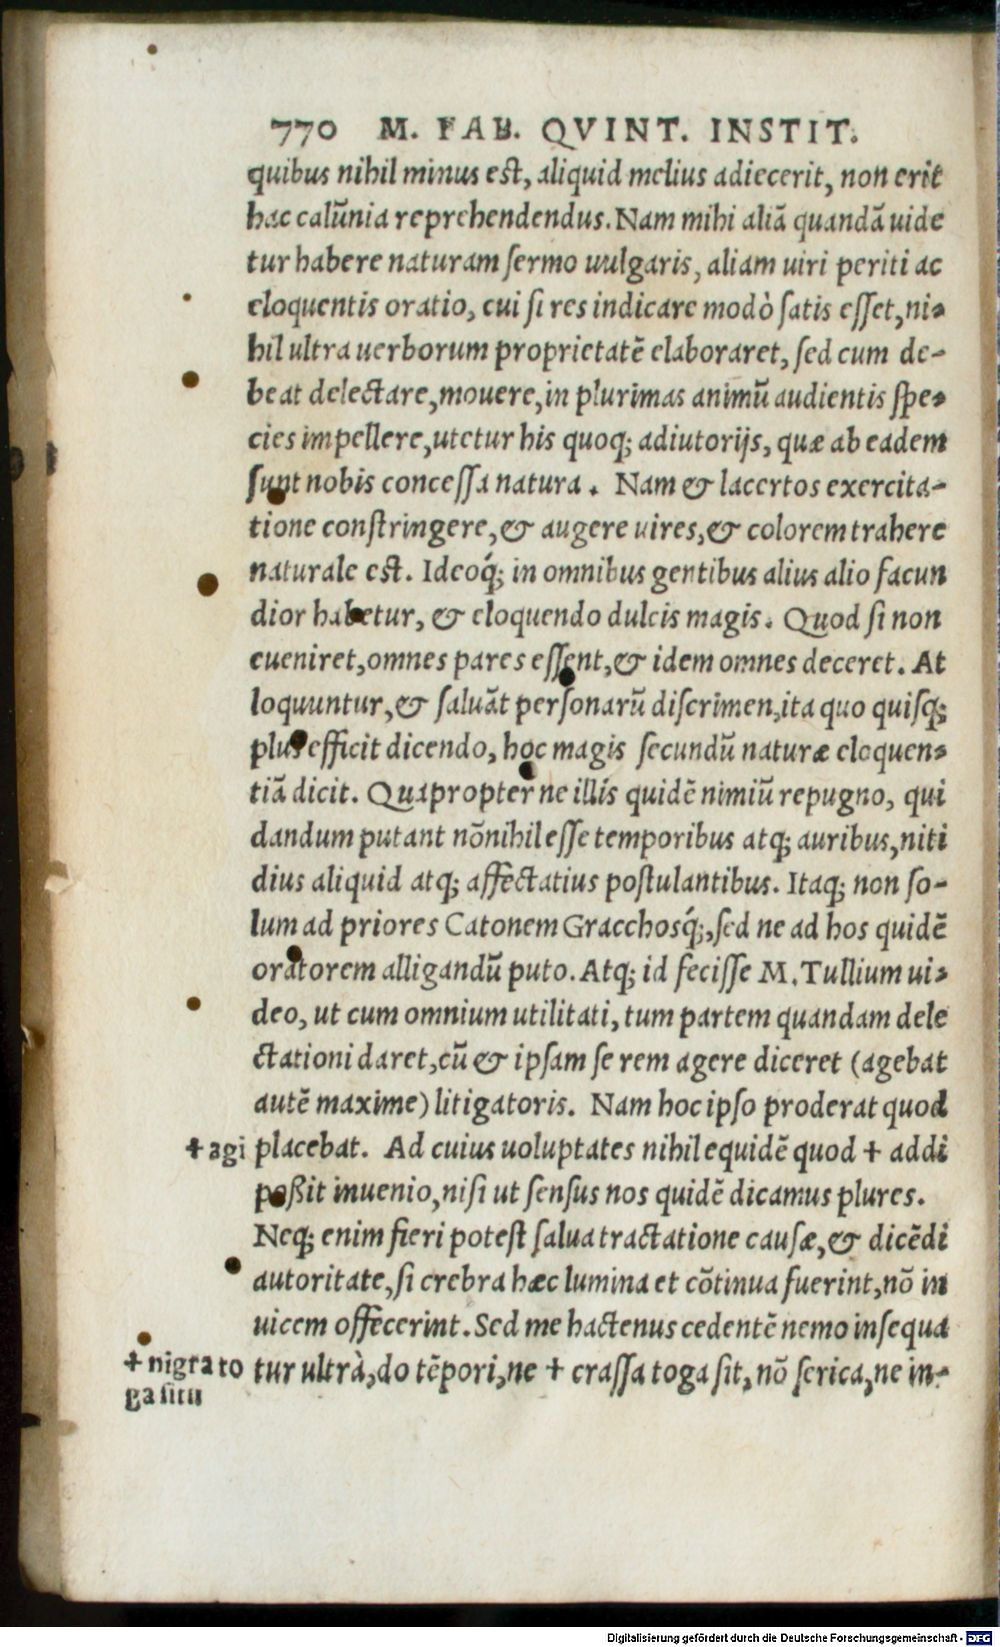 770 M. FAB. QVINT. INSTIT.
quibus nihil minus est, aliquid melius adiecerit, non erit
hac calũnia reprehendendus. Nam mihi aliã quandã uide
tur habere naturam sermo uulgaris, aliam uiri periti ac
eloquentis oratio, cui si res indicare modò satis esset, ni-
hil ultra uerborum proprietatẽ elaboraret, sed cum de-
beat delectare, mouere, in plurimas animũ audientis spe-
cies impellere, utetur his quoq; adiutorijs, quæ ab eadem
sunt nobis concessa natura. Nam & lacertos exercita-
tione constringere, & augere uires, & colorem trahere
naturale est. Ideoq́; in omnibus gentibus alius alio facun
dior habetur, & eloquendo dulcis magis. Quod si non
eueniret, omnes pares essent, & idem omnes deceret. At
loquuntur, & saluãt personarũ discrimen, ita quo quisq;
plus efficit dicendo, hoc magis secundũ naturæ eloquen-
tiã dicit. Quapropter ne illis quidẽ nimiũ repugno, qui
dandum putant nõnihil esse temporibus atq; auribus, niti
dius aliquid atq; affectatius postulantibus. Itaq; non so-
lum ad priores Catonem Gracchosq́;, sed ne ad hos quidẽ
oratorem alligandũ puto. Atq; id fecisse M. Tullium ui-
deo, ut cum omnium utilitati, tum partem quandam dele
ctationi daret, cũ & ipsam se rem agere diceret (agebat
autẽ maxime) litigatoris. Nam hoc ipso proderat quod
+ agi placebat. Ad cuius uoluptates nihil equidẽ quod + addi
poßit inuenio, nisi ut sensus nos quidẽ dicamus plures.
Neq; enim fieri potest salua tractatione causæ, & dicẽdi
autoritate, si crebra hæc lumina et cõtinua fuerint, nõ in
uicem offecerint. Sed me hactenus cedentẽ nemo insequa
+ nigra to tur ultrà, do tẽpori, ne + crassa toga sit, nõ serica, ne in-
ga situ
Digitalisierung gefördert durch die Deutsche Forschungsgemeinschaft - DFG